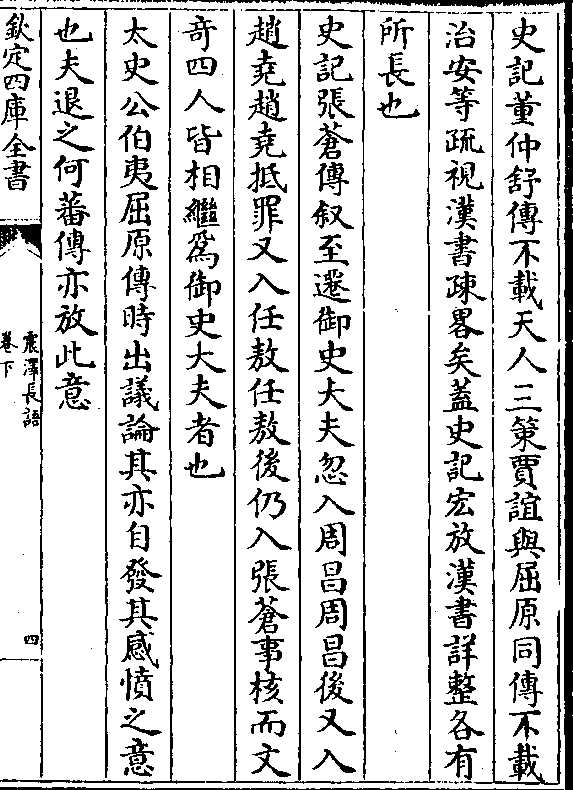 史記董仲舒傳不載天人三策賈誼與屈原同傳不載
治安等疏視漢書疎畧矣蓋史記宏放漢書詳整各有
所長也
史記張蒼傳叙至遷御史大夫忽入周昌周昌後又入
趙堯趙堯抵罪又入任敖任敖後仍入張蒼事核而文
竒四人皆相繼為御史大夫者也
太史公伯夷屈原傳時出議論其亦自發其感憤之意
也夫退之何蕃傳亦放此意
欽定四庫全書
震澤長語
卷下
四